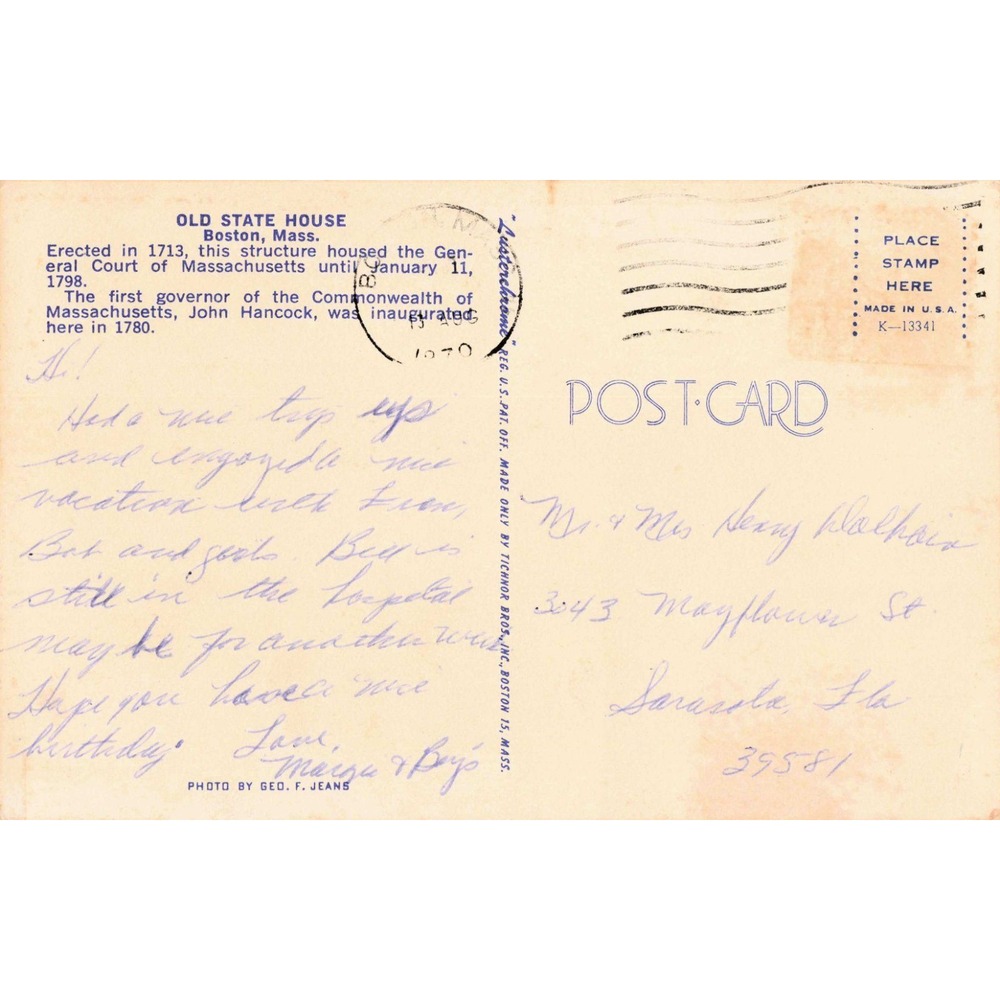 OLD STATE HOUSE
Boston, Mass.
Erected in 1713, this structure housed the Gen-
eral Court of Massachusetts until January 11,
1798.
The first governor of the Commonwealth of
Massachusetts, John Hancock, was inaugurated
here in 1780.
Hi!
Had a nice trip up
and enjoyed a nice
vacation with
Bob and girls. Bill is
still in the hospital
may be for another week
Hope you have a nice
birthday. Love,
Margie & Boys
PHOTO BY GEO. F. JEANS
"Lusterchrome" REG. U.S. PAT. OFF. MADE ONLY BY TICHNOR BROS., INC., BOSTON 15, MASS.
AUG
1970
PLACE
STAMP
HERE
MADE IN U.S.A.
K—13341
POST·CARD
Mr. & Mrs Henry
3043 Mayflower St
Sarasota, Fla
39581